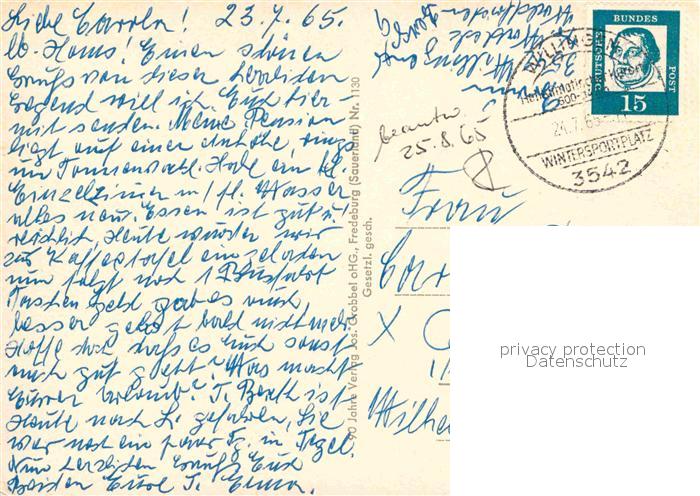 Liebe Carola! 23.7.65.
lb. Hans! Einen schönen
Gruß von dieser herrlichen
Gegend will ich Euch hier-
mit senden. Meine Pension
liegt auf einer Anhöhe, rings
um Tannenwald. Habe ein kl.
Einzelzimer m/ fl. Wasser
alles neu. Essen ist gut u.
reichlich, Heute wurden wir
zur Kaffeetafel eingeladen
nun folgt noch 1 Busfahrt
Taschen Geld gab es auch,
besser gehts bald nicht mehr.
Hoffe doch daß es Euch sonst
noch gut geht? Was macht
Eurer Urlaub? T. Berth ist
Heute nach gefahren, Sie
war noch ein paar Tg. in Tegel.
Nun herzlichen Gruß Euch
Beiden Eure T. Erna.
90 Jahre Verlag Jos. Grobbel oHG., Fredeburg (Sauerland) Nr. 1130
Gesetzl. gesch.
beantw.
25.8.65
DEUTSCHE BUNDESPOST
15
WILLINGEN
Heilklimatischer Kurort
600-
24.7.65
WINTERSPORTPLATZ
3542
Frau
Car
X
Wilhe
privacy protection
Datenschutz